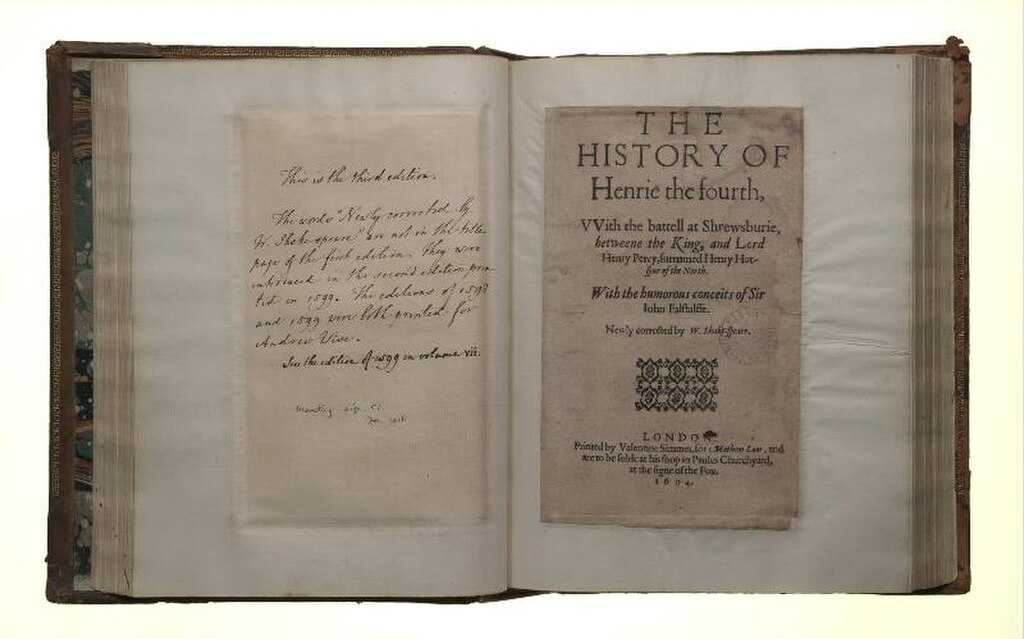 This is the third edition.
The words "Newly corrected by
W. Shakespeare" are not in the title
page of the first edition. They were
introduced in the second edition prin-
ted in 1599. The editions of 1598
and 1599 were both printed for
Andrew Wise.
See the edition of 1599 in volume VII.
THE
HISTORY OF
Henrie the fourth,
VVith the battell at Shrewsburie,
betweene the King, and Lord
Henry Percy, surnamed Henry Hot-
spur of the North.
With the humorous conceits of Sir
Iohn Falstalffe.
Newly corrected by W. Shake-speare.
LONDON
Printed by Valentine Simmes, for Mathew Law, and
are to be solde at his shop in Paules Churchyard,
at the signe of the Fox.
1604.